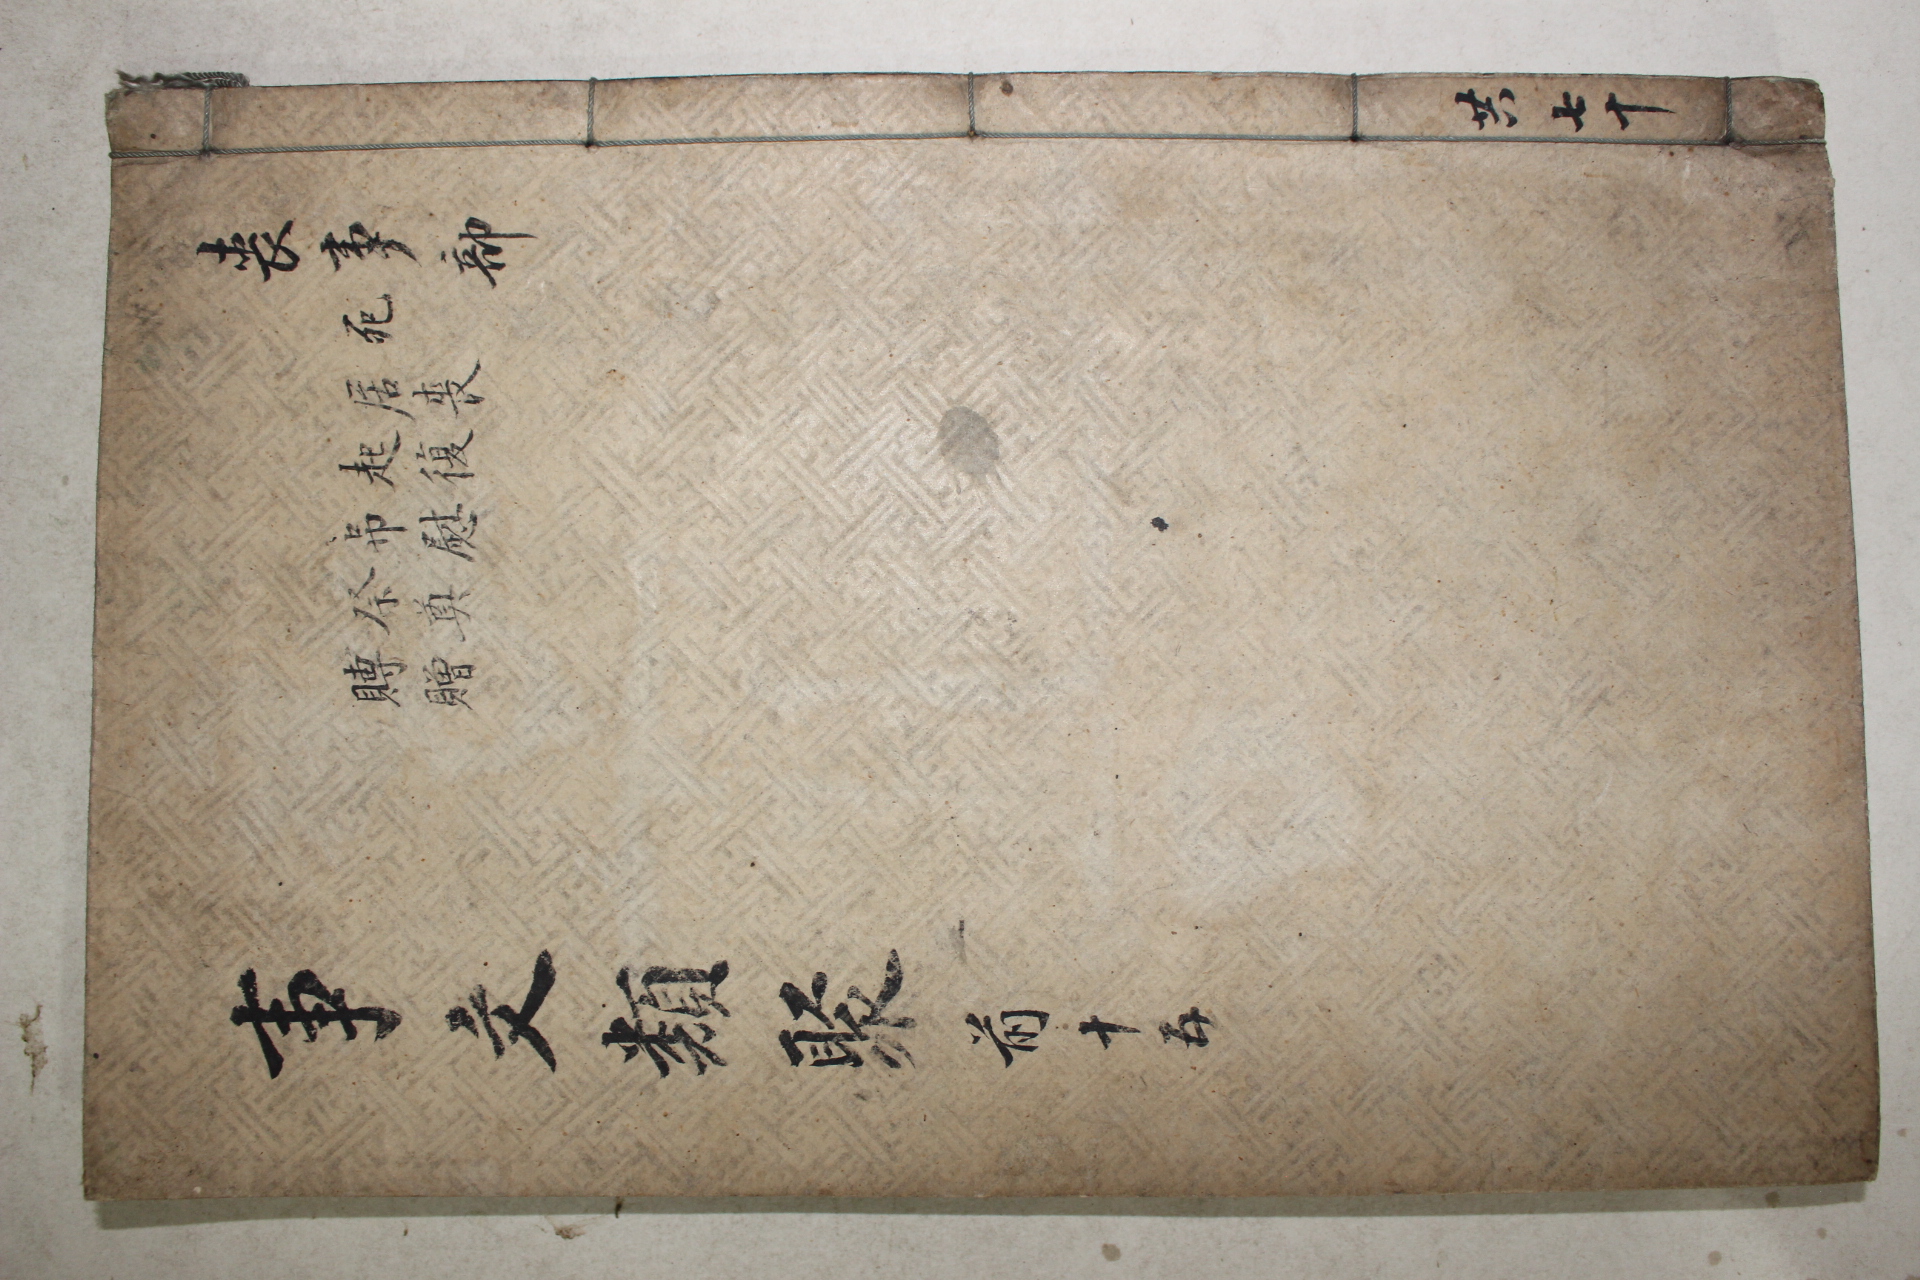 喪事部
死
居喪
起復
吊慰
祭奠
賻贈
事文類聚 前十五
共七十